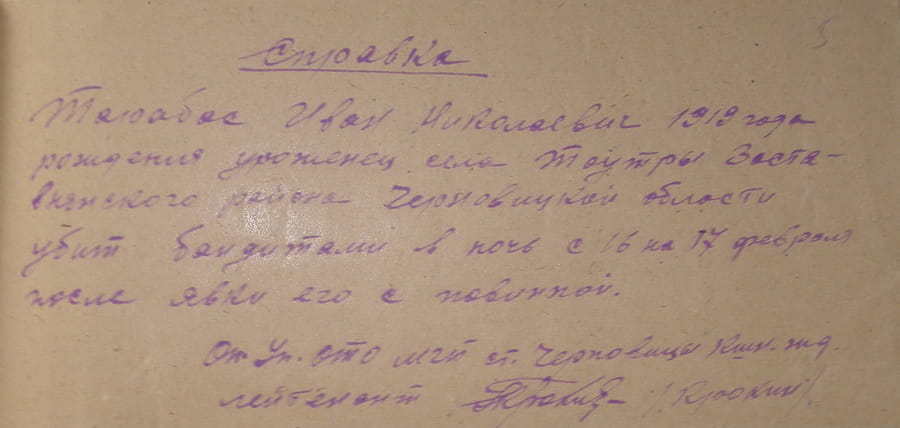 5
Справка
Иван Николаевич 1919 года
рождения уроженец села Тоутры Заста-
внянского района Черновицкой области
убит бандитами в ночь с 16 на 17 февраля
после явки его с повинной.
ОТО МГБ ст. Черновицы Киш. жд.
лейтенант (Крюкин)